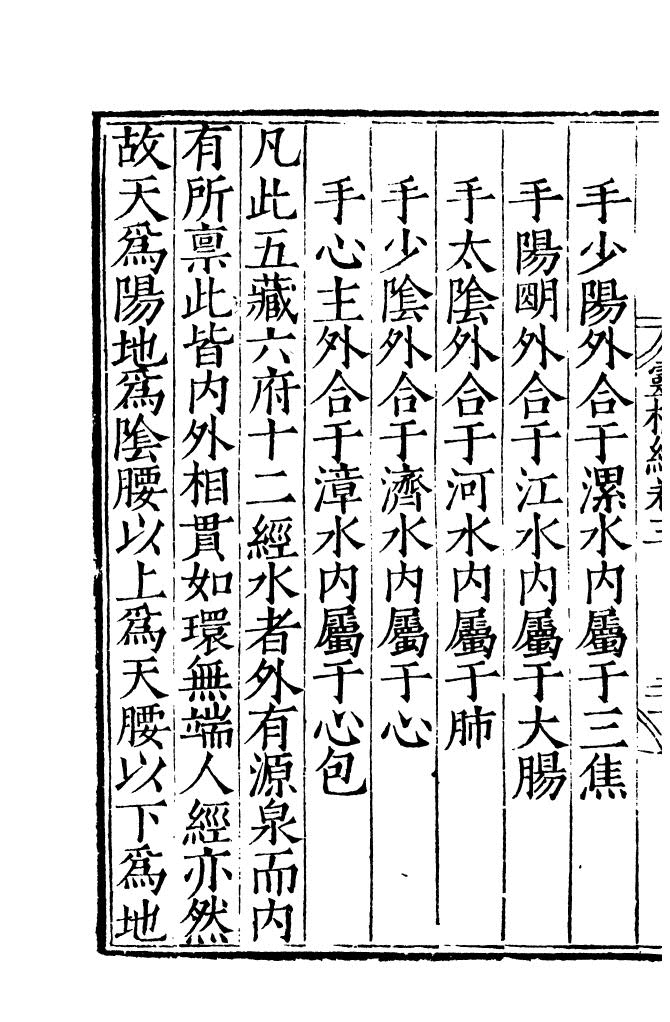 靈樞經卷三
手少陽外合于漯水内屬于三焦
手陽明外合于江水内屬于大腸
手太陰外合于河水内屬于肺
手少陰外合于濟水内屬于心
手心主外合于漳水内屬于心包
凡此五藏六府十二經水者外有源泉而内
有所稟此皆内外相貫如環無端人經亦然
故天爲陽地爲陰腰以上爲天腰以下爲地